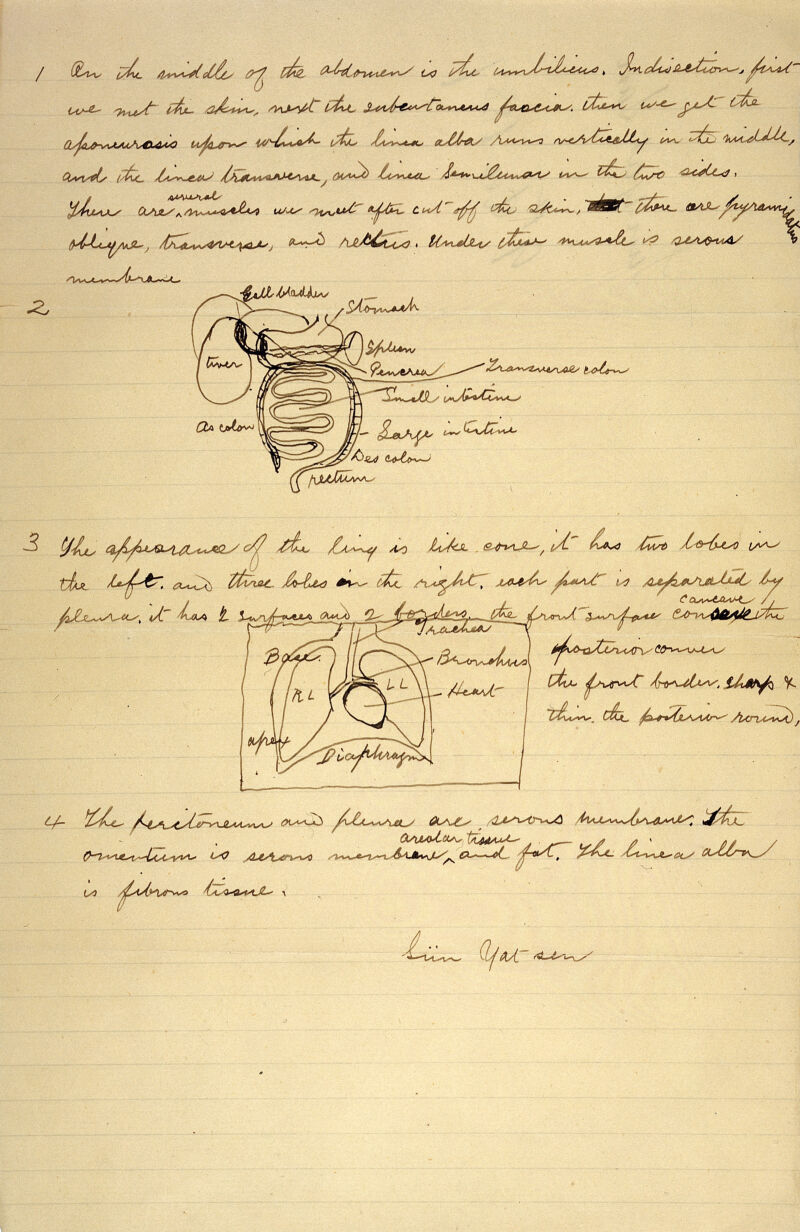 1 On the middle of the abdomen is the umbilicus. In disection, first
we met the skin, next the subcutaneus fascia. then we get the
aponeurosis upon which the linea alba runs vertically in the middle,
and the linea transverse, and linea Semilunar in the two sides.
several
There are muscles we meet after cut off the skin, there are pyramidatus
oblique, transverse, and rectus. Under these muscle is serous
membrane
2
Gall bladder
Stomach
Liver
Spleen
Pencrea
Transverse colon
Small intestine
As colon
Large intestine
Des colon
rectum
3 The appearance of the ling is like cone, it has two lobes in
the left. and three lobes in the right. each part is separated by
concave
pleura. it has 2 surfaces and 2 borders. the front surface the
Trachea
Base.
Bronchus
posterior convex
RL
LL
Heart
the front border. sharp &
thin. the posterior round,
apex
Diaphragm
4 The peritoneum and pleura are serous membrane. The
areolar tissue
omentum is serous membrane ^ and fat. The linea alba
is fibrous tissue.
Sün Yat sen